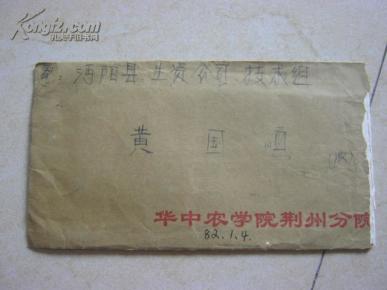 孔夫子旧书网
KONGFZ.COM
沔阳县生资公司技术组
黄国
(收)
华中农学院荆州分院
82.1.4.